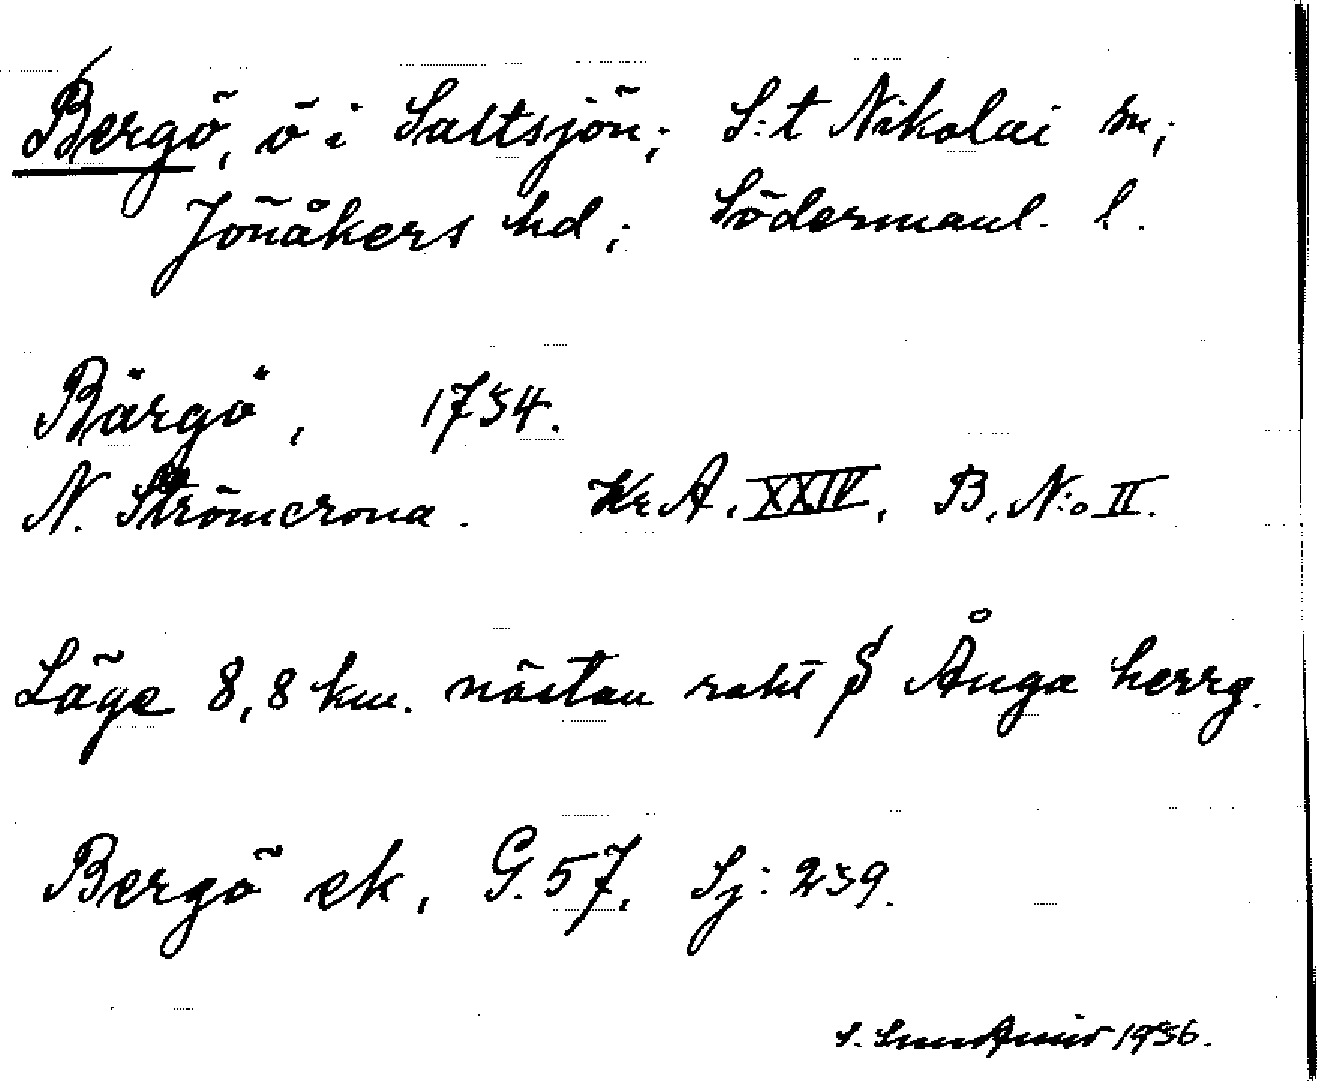 Bergö, ö i Saltsjön; S:t Nikolai sn;
Jönåkers hd; Södermanl. l.
Bärgö, 1734.
N. Strömcrona. Kr. A. XXIV, B, N:o II.
Läge 8,8 km. nästan rakt S Ånga herrg.
Bergö ek, G. 57, Sj: 239.
S. 1936.